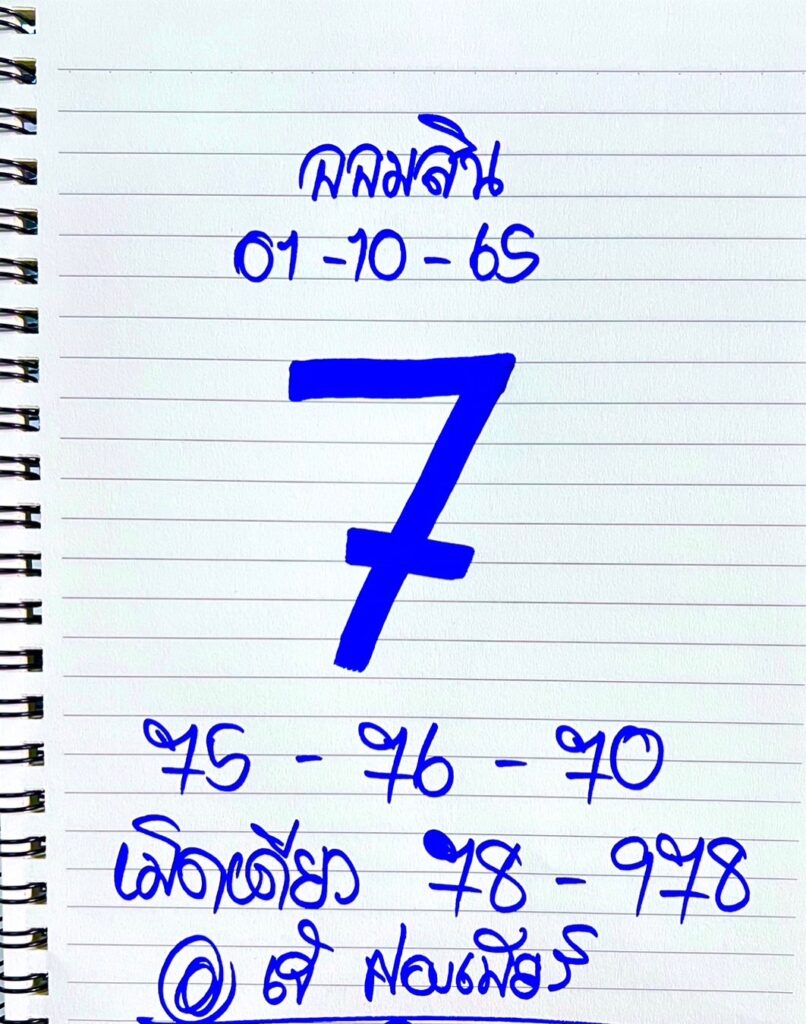 ออมสิน
01-10-65
7
75 - 76 - 70
เม็ดเดียว 78 - 978
@ เจ๊ ฟองเบียร์